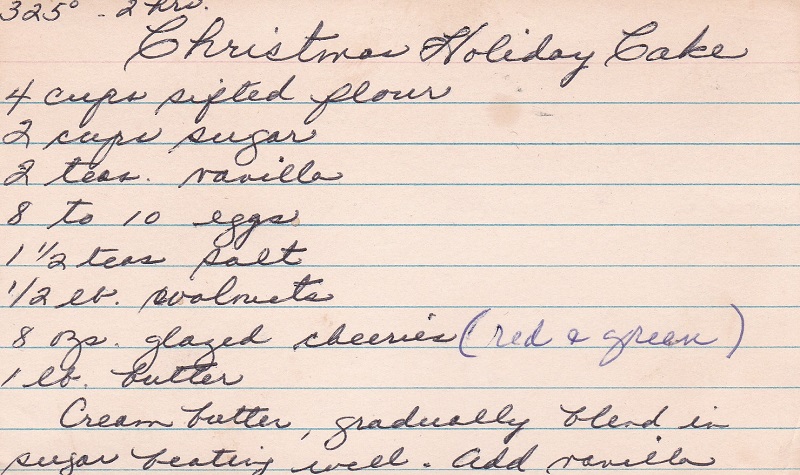 325° - 2 hrs.
Christmas Holiday Cake
4 cups sifted flour
2 cups sugar
2 teas. vanilla
8 to 10 eggs
1 1/2 teas salt
1/2 lb. walnuts
8 ozs. glazed cheeries (red & green)
1 lb. butter
Cream butter, gradually blend in
sugar beating well. Add vanilla